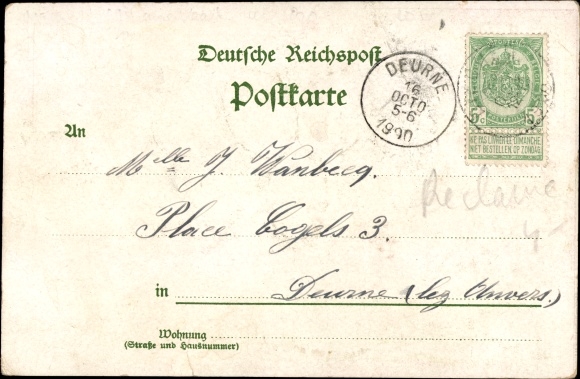 Deutsche Reichspost
Postkarte
DEURNE
16
OCTO
5-6
1900
5 c 5
NE PAS LIVRER LE DIMANCHE
NIET BESTELLEN OP ZONDAG
An
Mlle J. Wanbecq.
Reclame
Place Cogels 3.
in Deurne (lez Anvers.)
Wohnung
(Straße und Hausnummer)